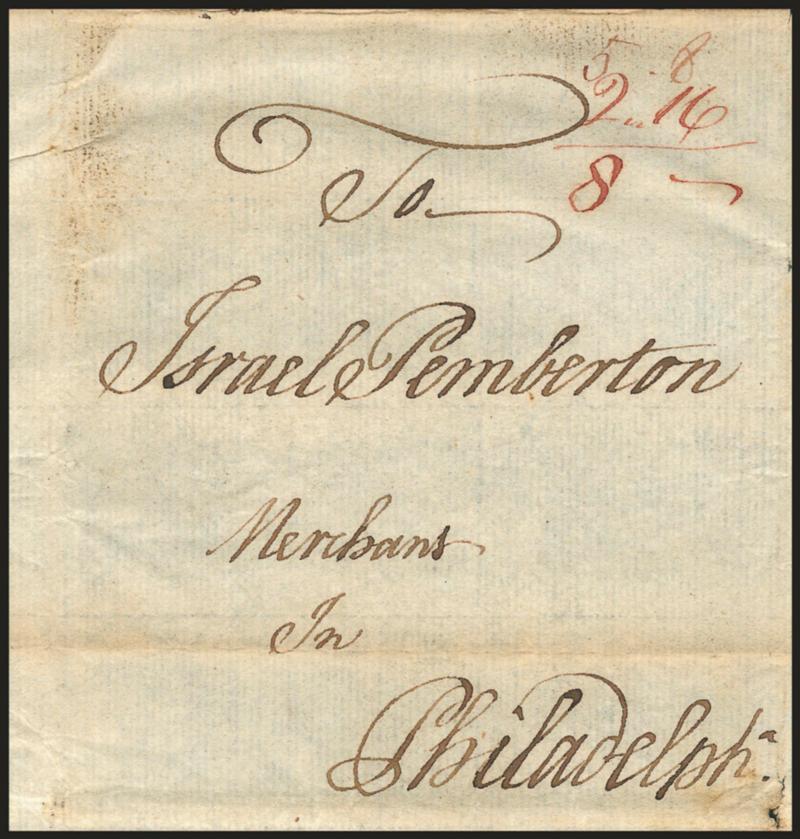 5 . 8
2 .. 16
8 ~
To
Israel Pemberton
Merchant
In
Philadelph.ª